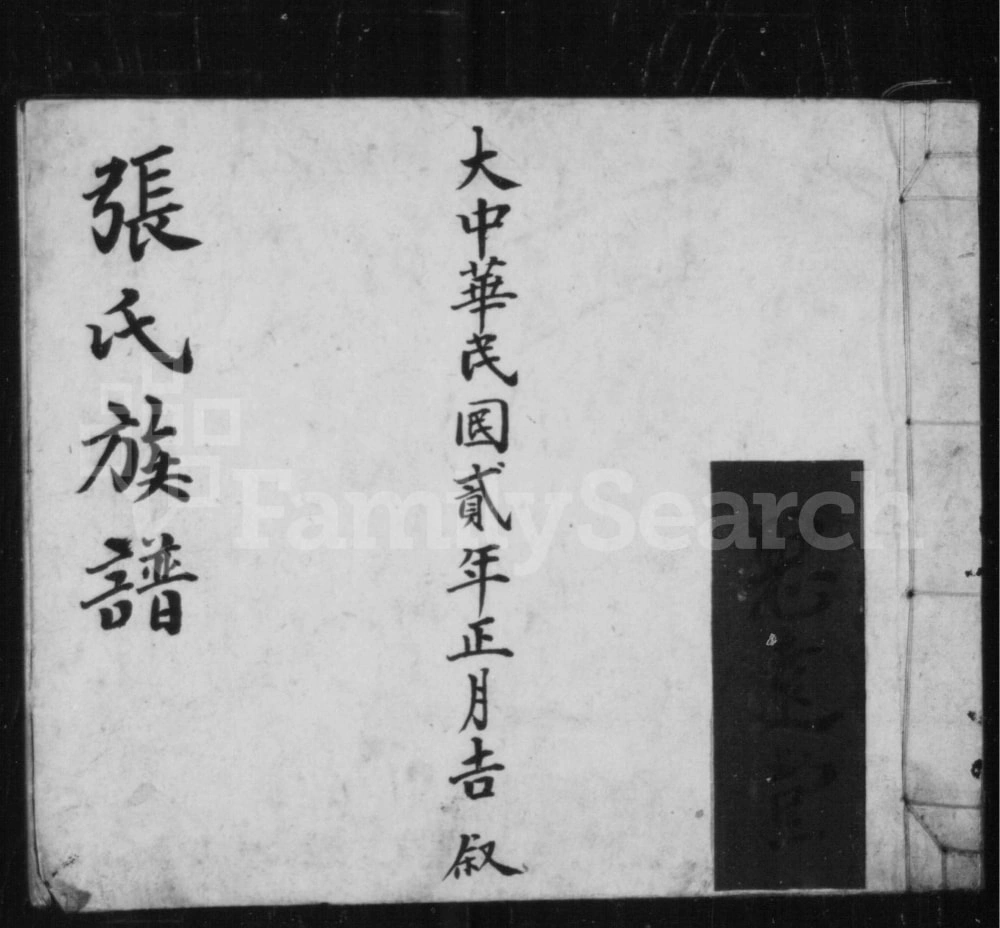 大中華民國貳年正月吉 叙
張氏族譜
FamilySearch